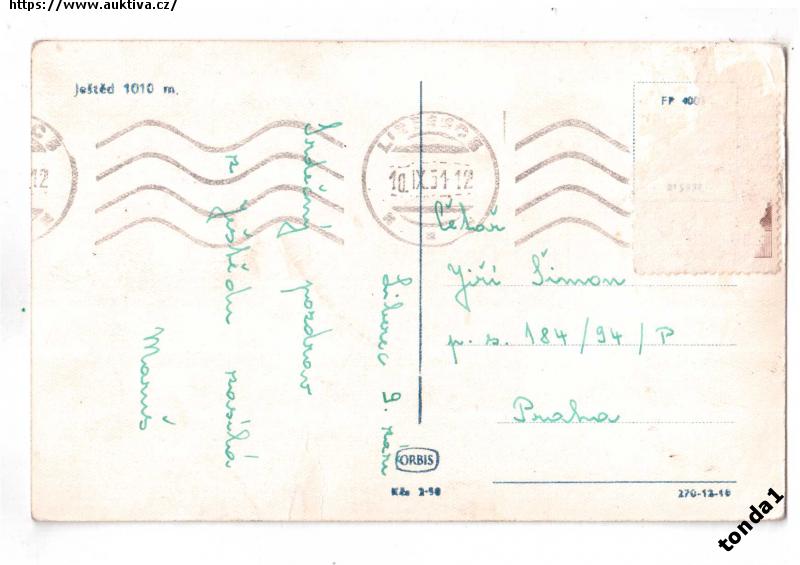 https://www.auktiva.cz/
Ještěd 1010 m.
FP 400
10.IX.51-12
12
Liberec 9. září
Srdečný pozdrav
z Ještědu zasílá
Maruš
Jiří Šimon
p. s. 184/94/P
Praha
ORBIS
Kčs 2·50
270-12-16
tonda1